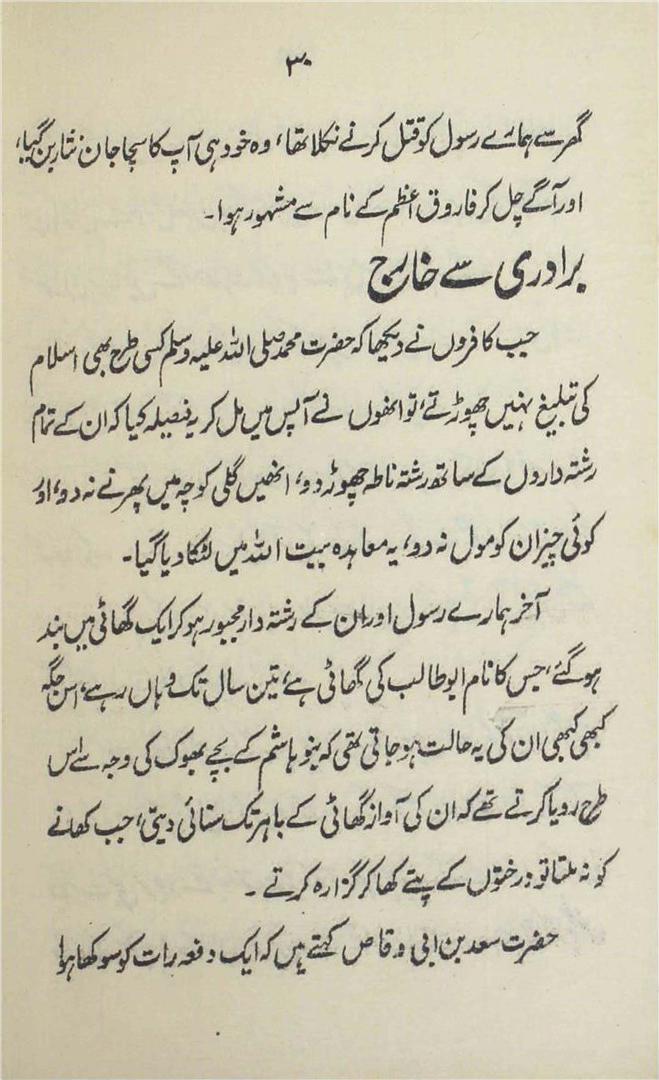 ۳۰
گھر سے ہمارے رسول کو قتل کرنے نکلا تھا، وہ خود ہی آپ کا سچا جان نثار بن گیا،
اور آگے چل کر فاروق اعظم کے نام سے مشہور ہوا۔
برادری سے خارج
جب کافروں نے دیکھا کہ حضرت محمد صلی اللہ علیہ وسلم کسی طرح بھی اسلام
کی تبلیغ نہیں چھوڑتے، تو انھوں نے آپس میں مل کر یہ فیصلہ کیا کہ ان کے تمام
رشتہ داروں کے ساتھ رشتہ ناطہ چھوڑ دو، انھیں گلی کوچہ میں پھرنے نہ دو، اور
کوئی چیز ان کو مول نہ دو، یہ معاہدہ بیت اللہ میں لٹکا دیا گیا۔
آخر ہمارے رسول اور ان کے رشتہ دار مجبور ہو کر ایک گھاٹی میں بند
ہو گئے، جس کا نام ابو طالب کی گھاٹی ہے، تین سال تک وہاں رہے، اس جگہ
کبھی کبھی ان کی یہ حالت ہو جاتی تھی کہ بنو ہاشم کے بچے بھوک کی وجہ سے اس
طرح رویا کرتے تھے کہ ان کی آواز گھاٹی کے باہر تک سنائی دیتی، جب کھانے
کو نہ ملتا تو درختوں کے پتے کھا کر گزارہ کرتے ۔
حضرت سعد بن ابی وقاص کہتے ہیں کہ ایک دفعہ رات کو سوکھا ہوا